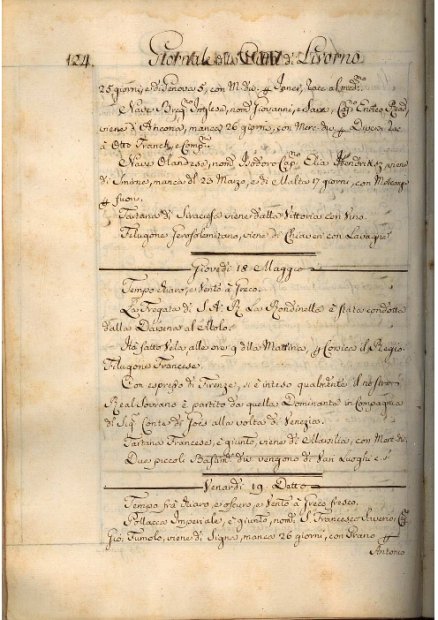 124. Giornale della Città di Livorno
25 giorni, e di Genova 5, con M. die p Jones,
Nave Brig.º Inglese, nom.º Giovanni, e Sara, Cap.º Enrico Read,
viene di Ancona, manca 26 giorni, con Merc. die p Diversi
à Otto Franck, e Comp.
Nave Olandese, nom.ª Isidoro Cap.º Elia Hendrikez, viene
di Smirne, manca dl 23 Marzo, e di Malta 17 giorni, con
p fuori.
Tartana di Siracusa viene dalla Vittoria con Vino.
Filugone Gerosolimitano, viene di Chiaveri con Lavagne
Giovedì 18. Maggio
Tempo chiaro, e Vento à Greco.
La Fregata di S. A. R. La Rondinella è stata condotta
dalla Darsena al Molo.
Hà fatto Vela alle ore 9 dlla Mattina, p Corsica il Regio
Filugone Francese.
Con espresso di Firenze, si è inteso qualmente il nostro
Real Sovrano è partito da quella Dominante in Compagnia
di Sig. Conte di alla volta di Venezia.
Tartana Francese, è giunto, viene di Marsilia, con Merc. die
Due piccoli Bastim.ti die vengono di Vari Luoghi e.
Venardi 19. Detto
Tempo frà chiaro, e oscuro, e Vento à Greco fresco.
Pollacca Imperiale, è giunto, nom.ª S. Francesco Saverio, Cap.º
Gio: Tumolo, viene di Signa, manca 26 giorni, con Grano p
Antonio